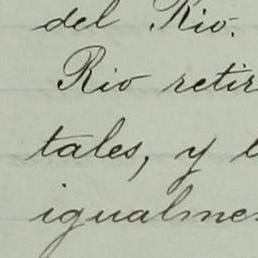 del Rio.
Rio retir
tales, y l
igualmen